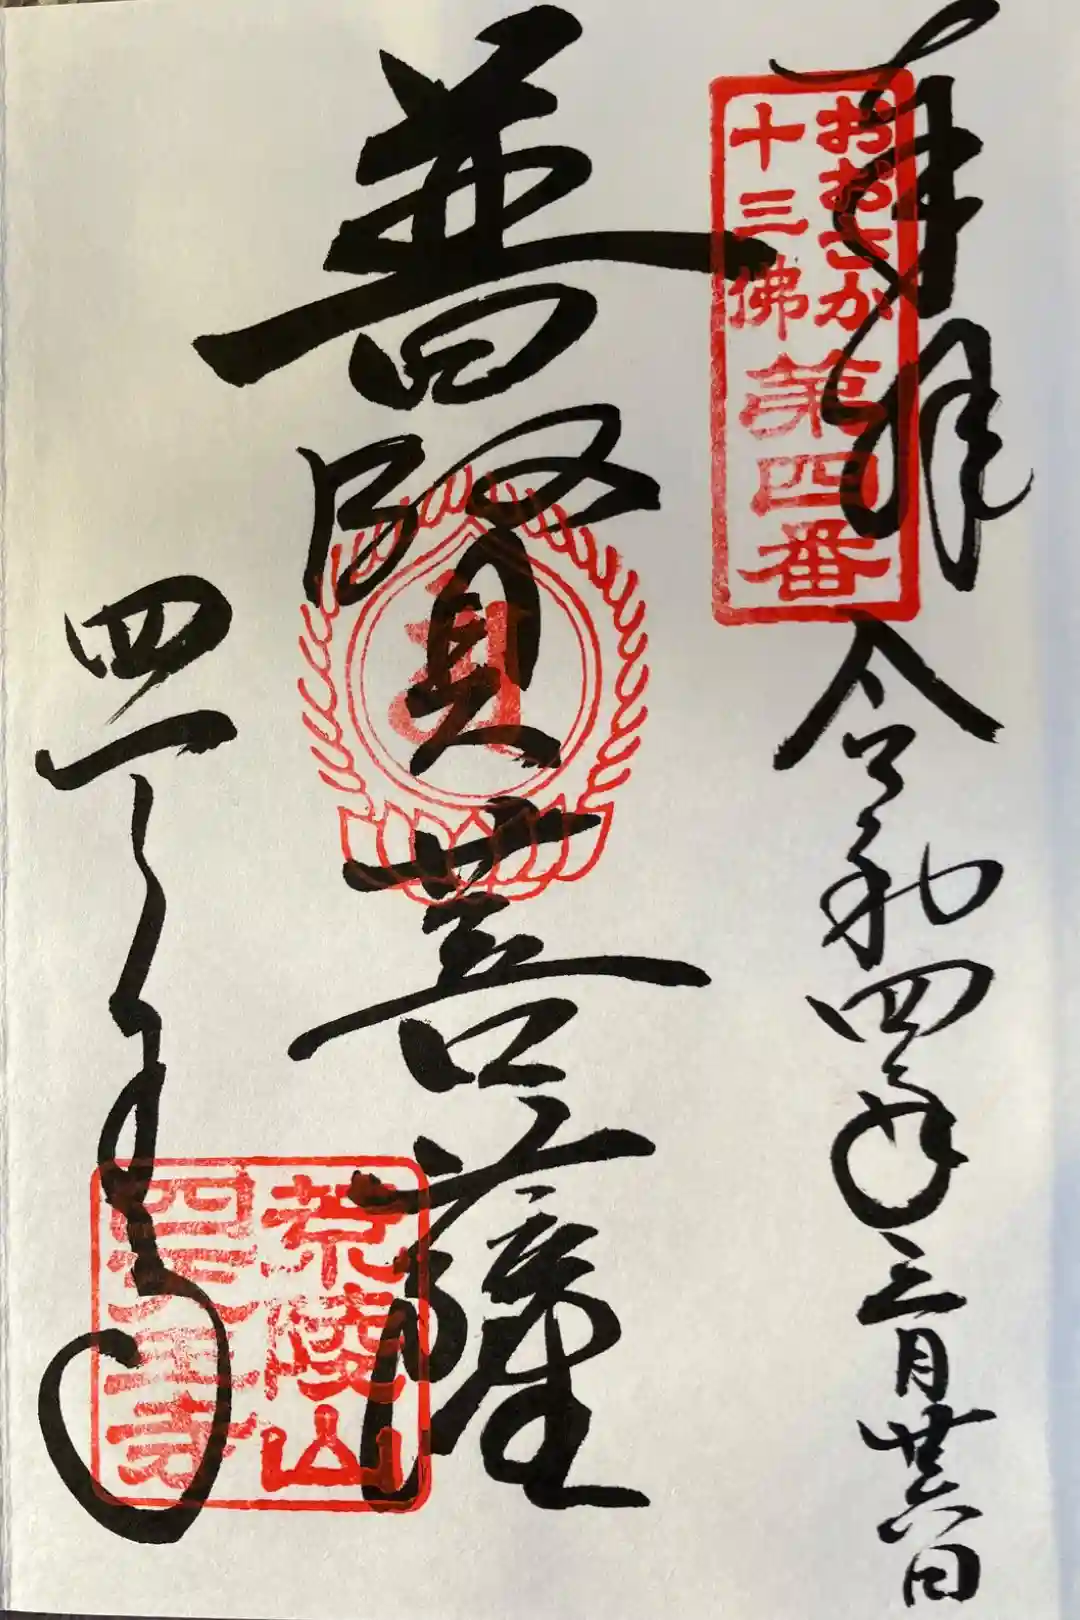 奉拝
令和四年三月廿六日
おおさか
十三佛
第四番
普賢菩薩
荒陵山
四天王寺
四天王寺